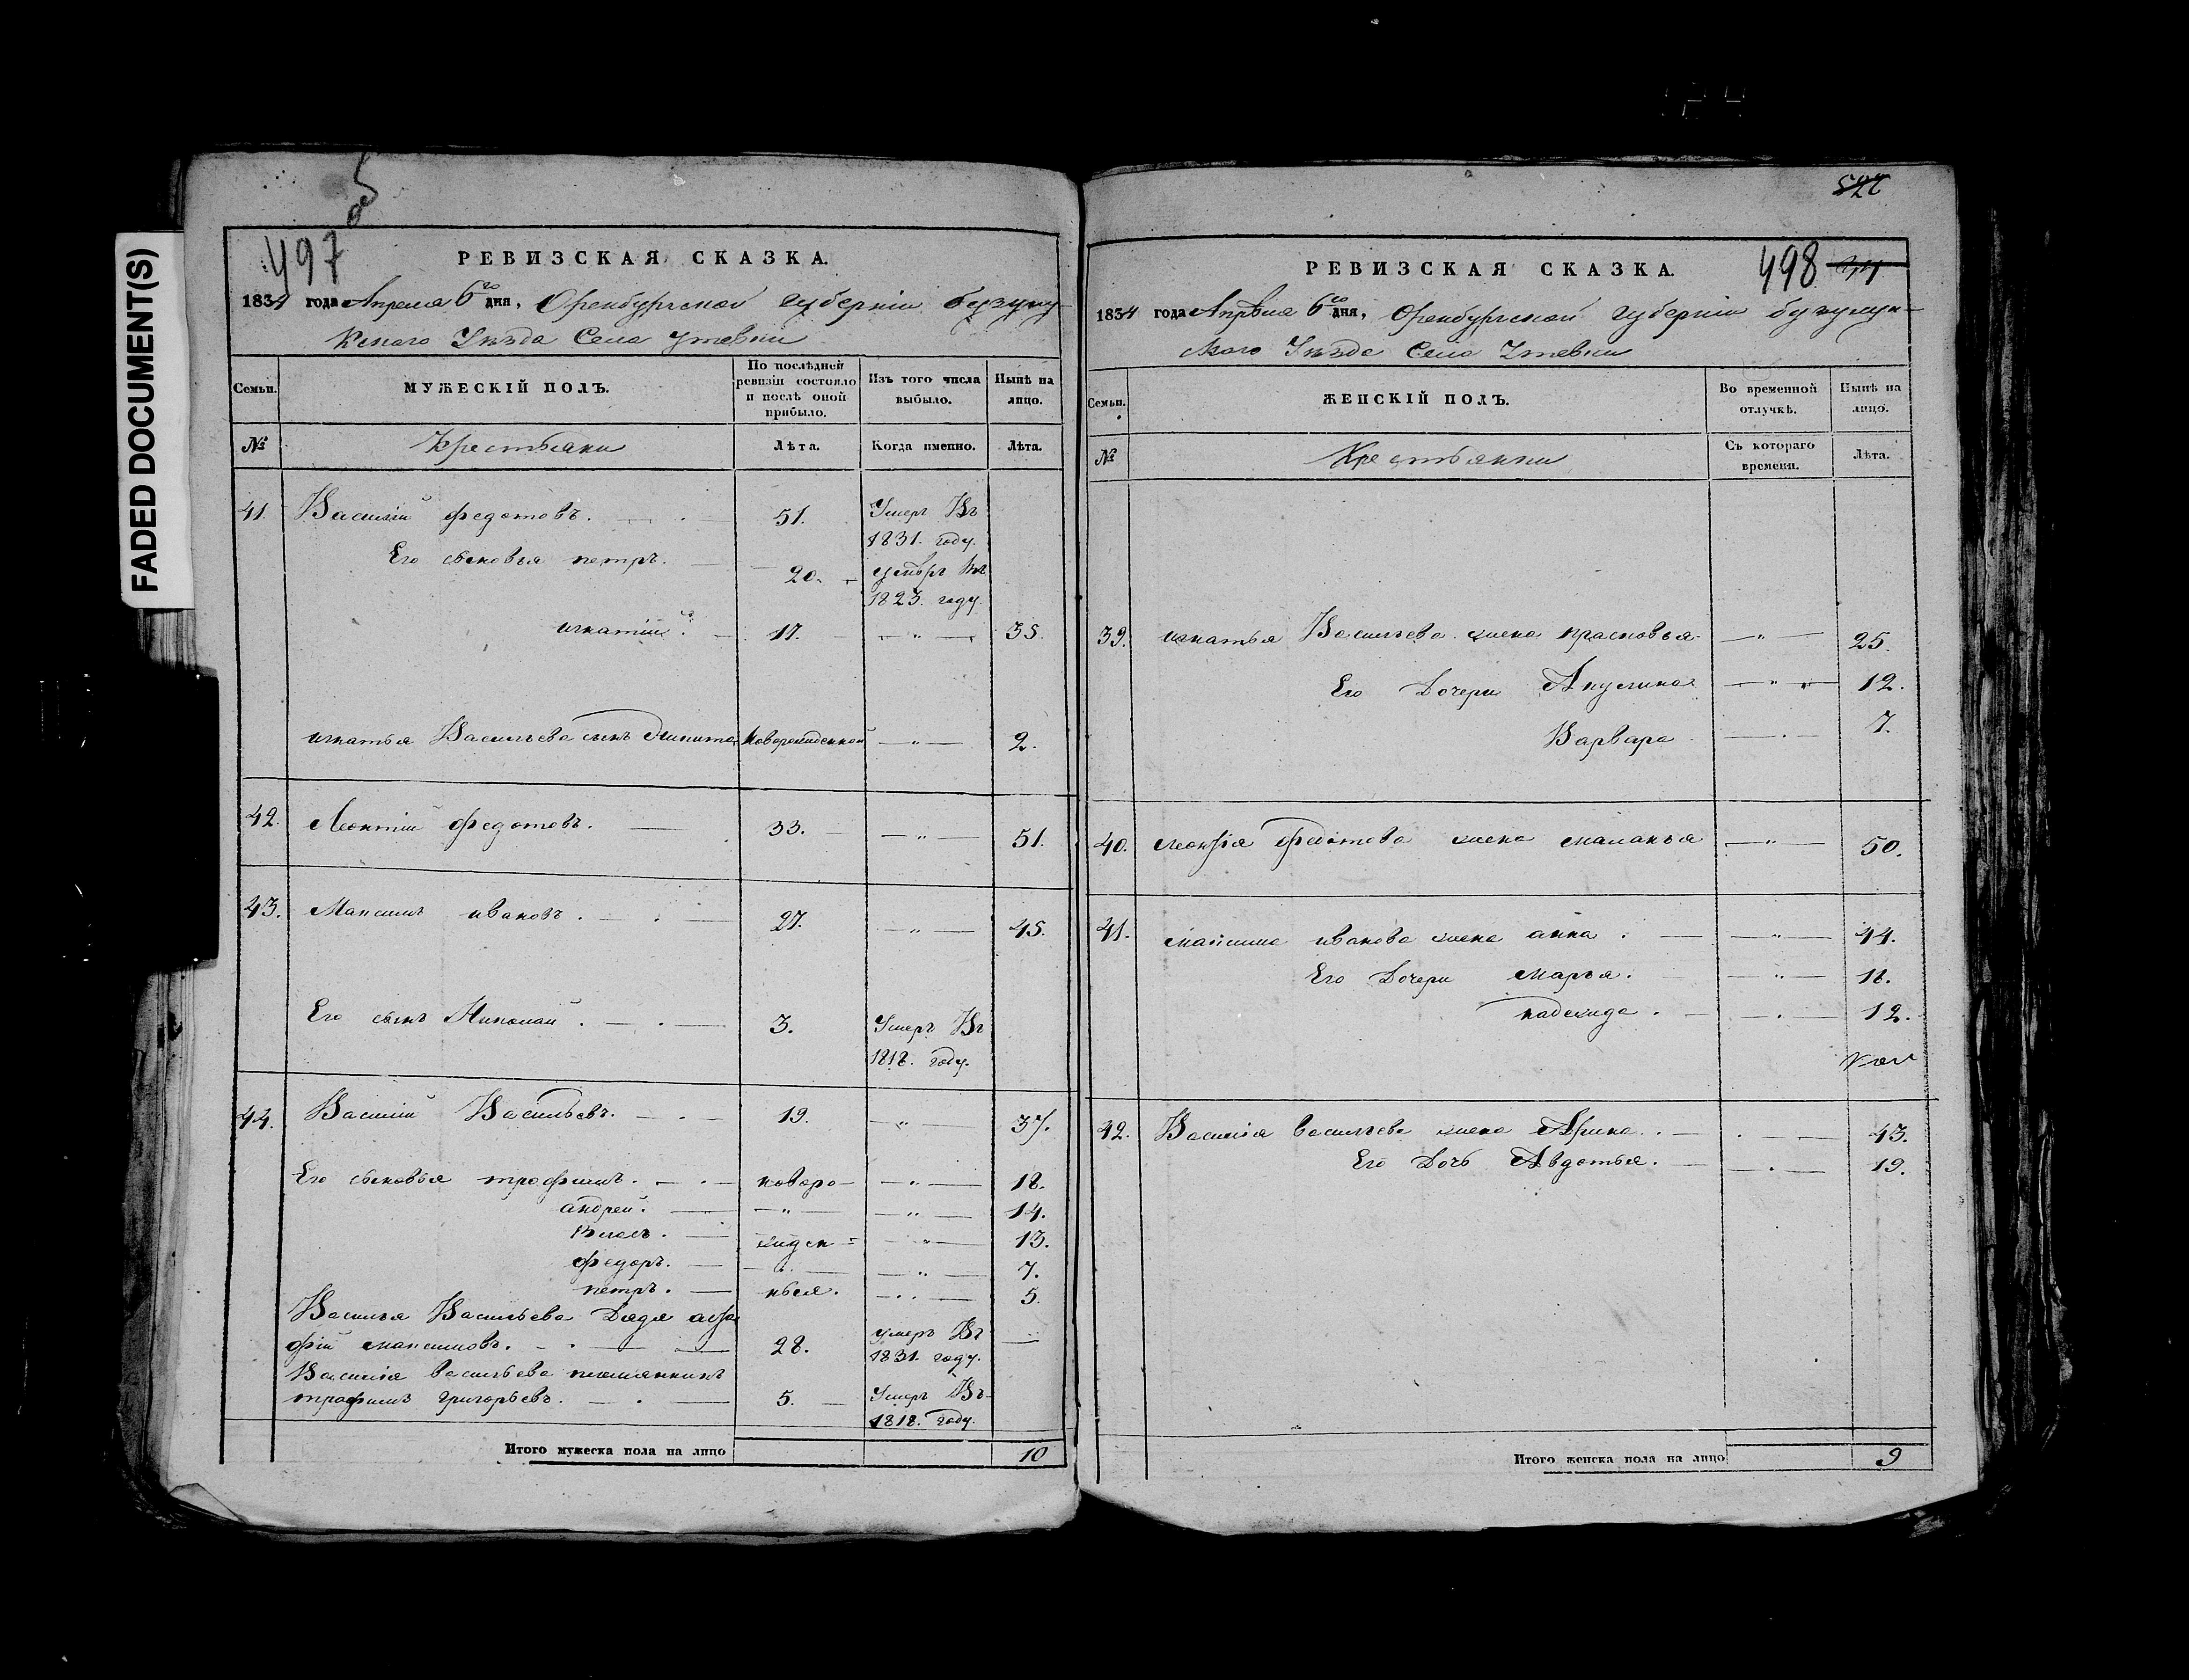 FADED DOCUMENT(S)
497
РЕВИЗСКАЯ СКАЗКА.
1834 года Апреля 6го дня, Оренбургской губерніи бузулу-
кскаго Уѣзда Села Утевки
Семьи.
МУЖЕСКІЙ ПОЛЪ.
По послѣдней ревизіи состояло и послѣ оной прибыло.
Изъ того числа выбыло.
Нынѣ на лицо.
№
Крестьяни
Лѣта.
Когда именно.
Лѣта.
41. Василій федотовъ. 51. Умеръ Въ
1831. году.
Его сыновья петръ. 20. умеръ Въ
1823. году.
игнатій. 17. 35.
игнатья Васильева сынъ Никита Новорожденной 2.
42. Леонтій федотовъ. 33. 51.
43. Максимъ ивановъ. 27. 45.
Его сынъ Николай. 3. Умеръ Въ
1818. году.
44. Василій Васильевъ. 19. 37.
Его сыновья трофимъ. новоро- 18.
андрей. 14.
Власъ. жден= 13.
федоръ. 7.
петръ. ныя. 5.
Василья Васильева Дядя
фій максимовъ. 28. умеръ Въ
1831. году.
Василія васильева племянникъ
трофимъ григорьевъ. 5. Умеръ Въ
1818. году.
Итого мужеска пола на лицо 10
527
498 44
РЕВИЗСКАЯ СКАЗКА.
1834 года Апреля 6го дня, Оренбургской губерніи бузулук-
скаго Уѣзда Села Утевки
Семьи.
ЖЕНСКІЙ ПОЛЪ.
Во временной отлучкѣ.
Нынѣ на лицо.
№
Крестьянки
Съ котораго времени.
Лѣта.
39. игнатья Васильева жена прасковья 25.
Его Дочери Акулина 12.
Варвара 7.
40. леонтія федотова жена маланья 50.
41. максима иванова жена анна. 44.
Его Дочери марья. 18.
надежда. 12.
42. Василія васильева жена Арина. 43.
Его Дочь Авдотья. 19.
Итого женска пола на лицо 9